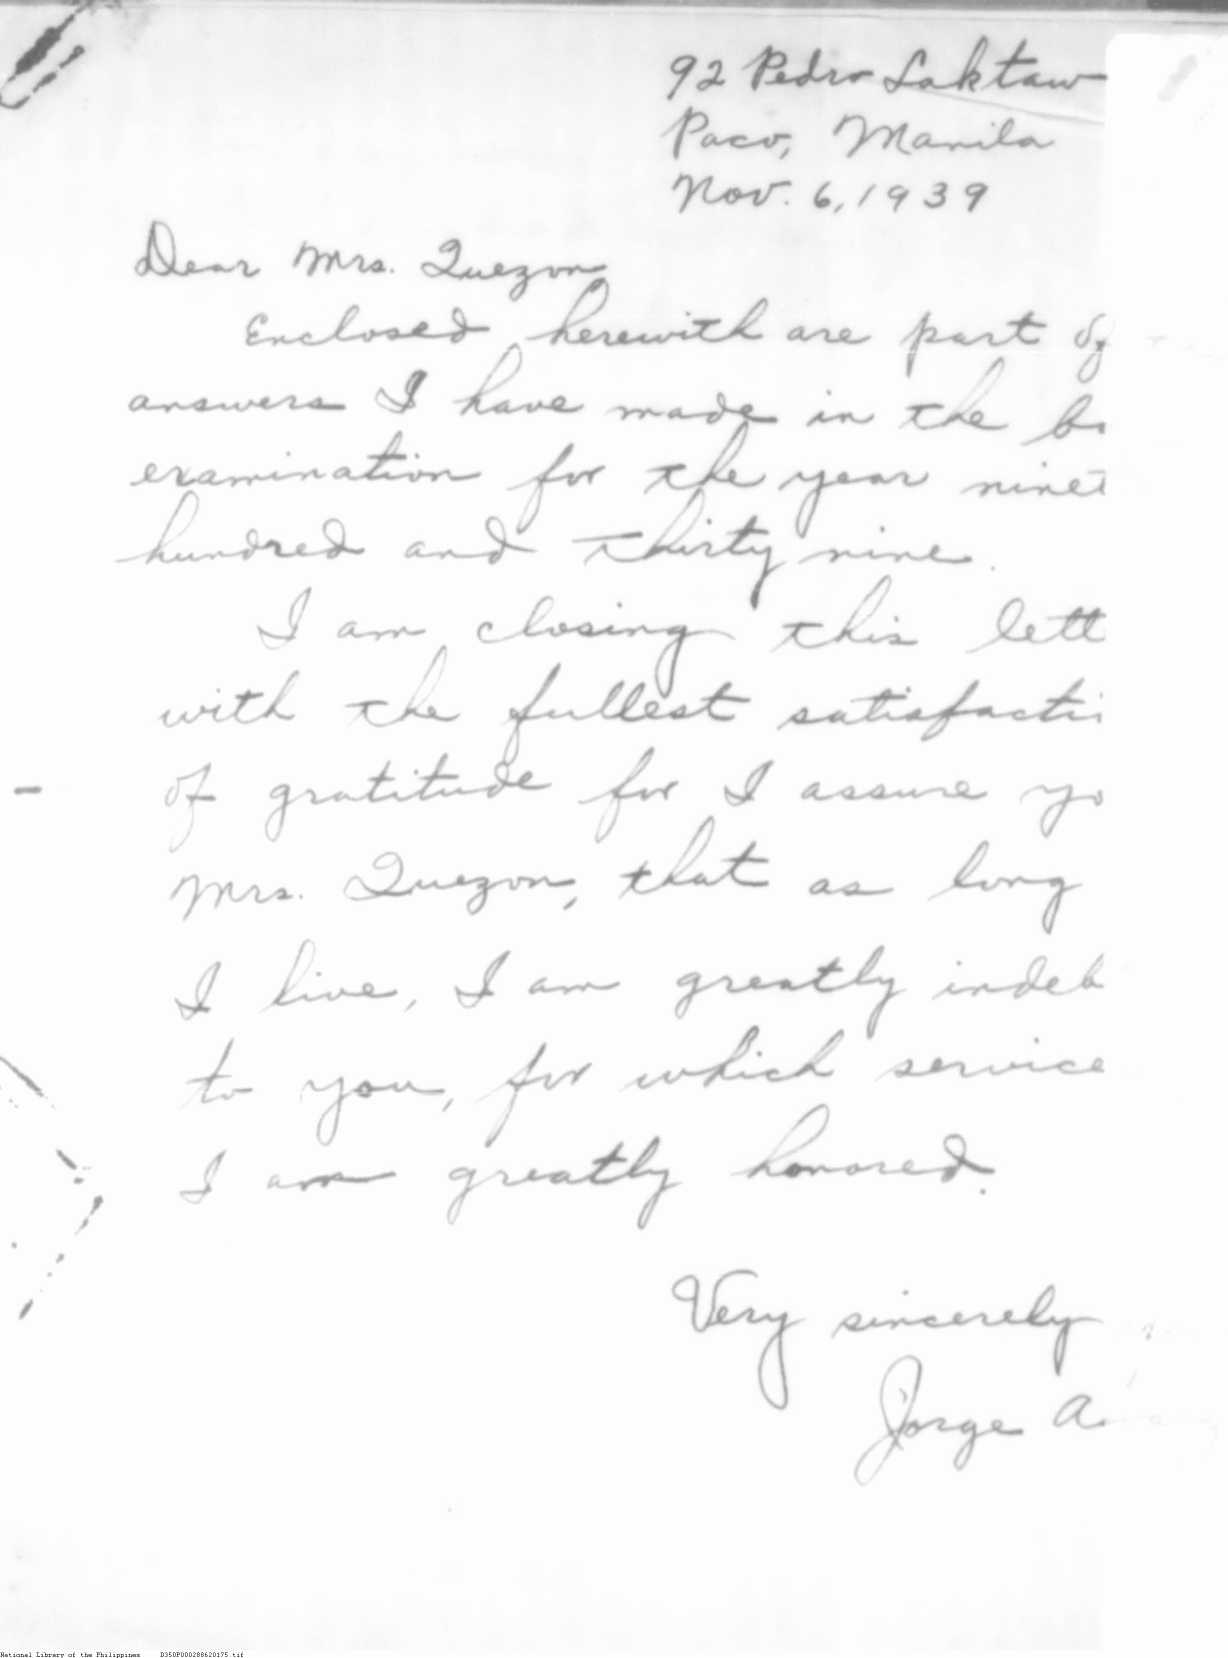 92 Pedro Laktaw
Paco, Manila
Nov. 6, 1939
Dear Mrs. Quezon,
Enclosed herewith are part of
answers I have made in the
examination for the year ninet
hundred and thirty nine.
I am closing this lett
with the fullest satisfacti
of gratitude for I assure yo
Mrs. Quezon, that as long
I live, I am greatly indeb
to you, for which service
I am greatly honored.
Very sincerely
Jorge A.
National Library of the Philippines D350P000288620175.tif